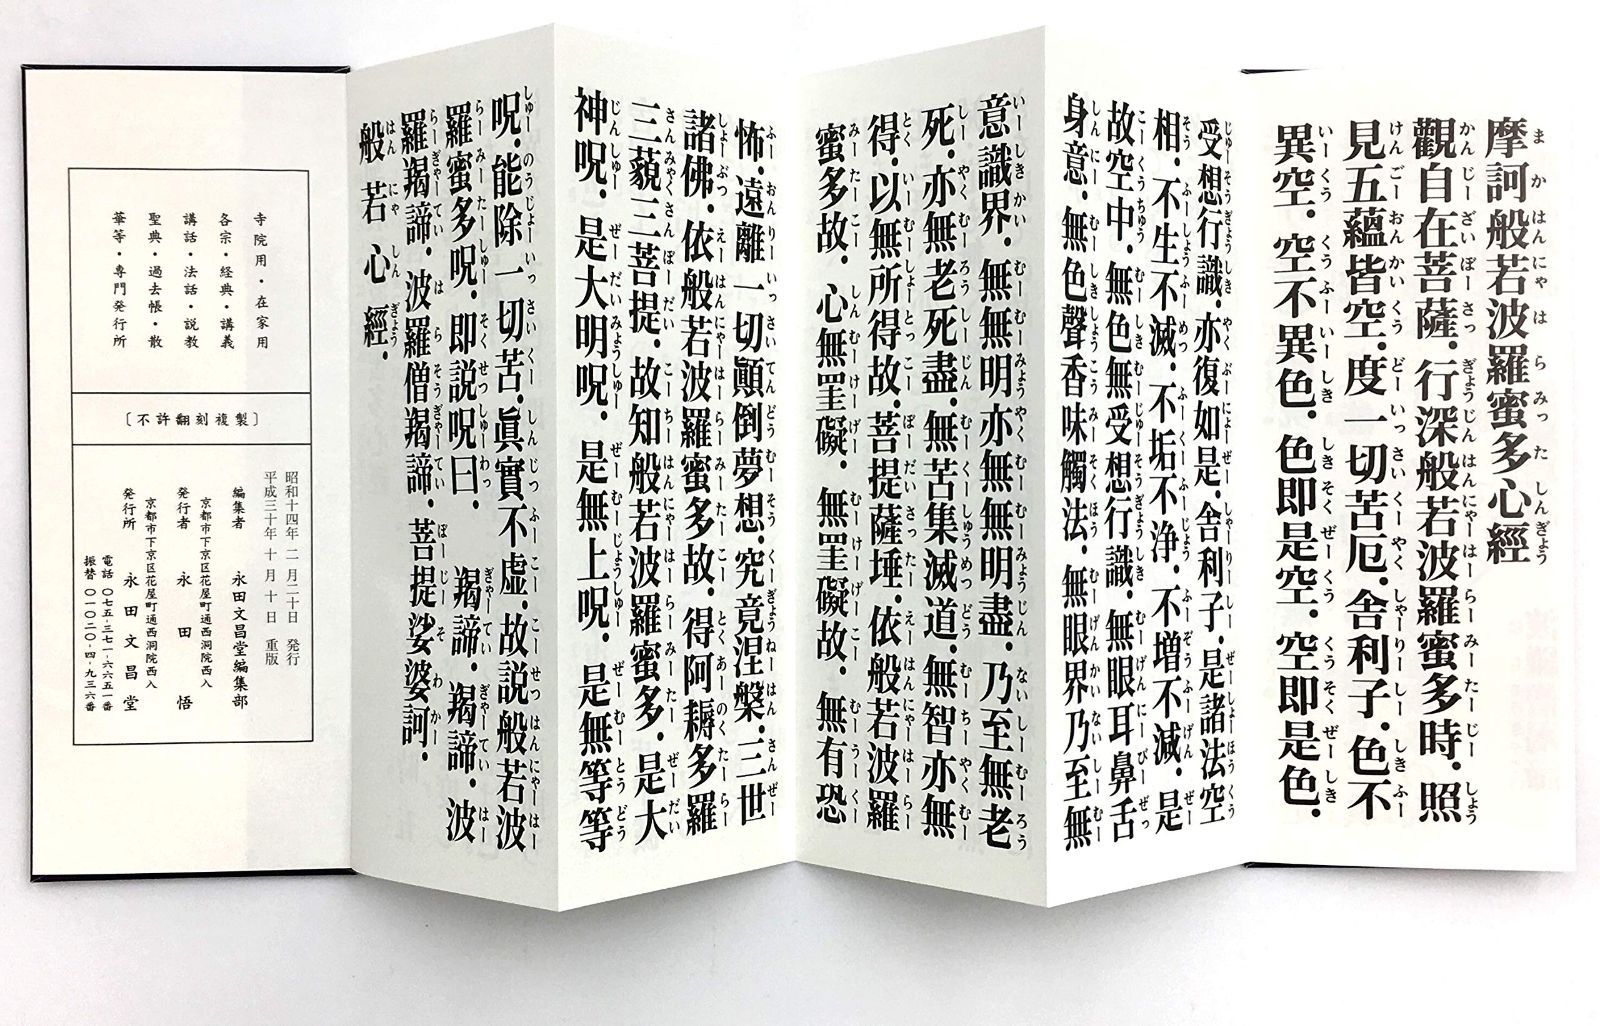 摩訶般若波羅蜜多心經
觀自在菩薩．行深般若波羅蜜多時．照
見五蘊皆空．度一切苦厄．舎利子．色不
異空．空不異色．色即是空．空即是色．
受想行識．亦復如是．舎利子．是諸法空
相．不生不滅．不垢不浄．不増不減．是
故空中．無色無受想行識．無眼耳鼻舌
身意．無色聲香味觸法．無眼界乃至無
意識界．無無明亦無無明盡．乃至無老
死．亦無老死盡．無苦集滅道．無智亦無
得．以無所得故．菩提薩埵．依般若波羅
蜜多故．心無罣礙．無罣礙故．無有恐
怖．遠離一切顚倒夢想．究竟涅槃．三世
諸佛．依般若波羅蜜多故．得阿耨多羅
三藐三菩提．故知般若波羅蜜多．是大
神呪．是大明呪．是無上呪．是無等等
呪．能除一切苦．眞實不虚．故説般若波
羅蜜多呪．即説呪曰．羯諦．羯諦．波
羅羯諦．波羅僧羯諦．菩提娑婆訶．
般若心經．
寺院用・在家用
各宗・経典・講義
講話・法話・説教
聖典・過去帳・散
華等・専門発行所
〔不許翻刻複製〕
昭和十四年二月二十日 発行
平成三十年十月十日 重版
編集者 永田文昌堂編集部
京都市下京区花屋町通西洞院西入
発行者 永田悟
京都市下京区花屋町通西洞院西入
発行所 永田文昌堂
電話 〇七五-三七一-六六五一番
振替 〇一〇二〇-四-九三六番